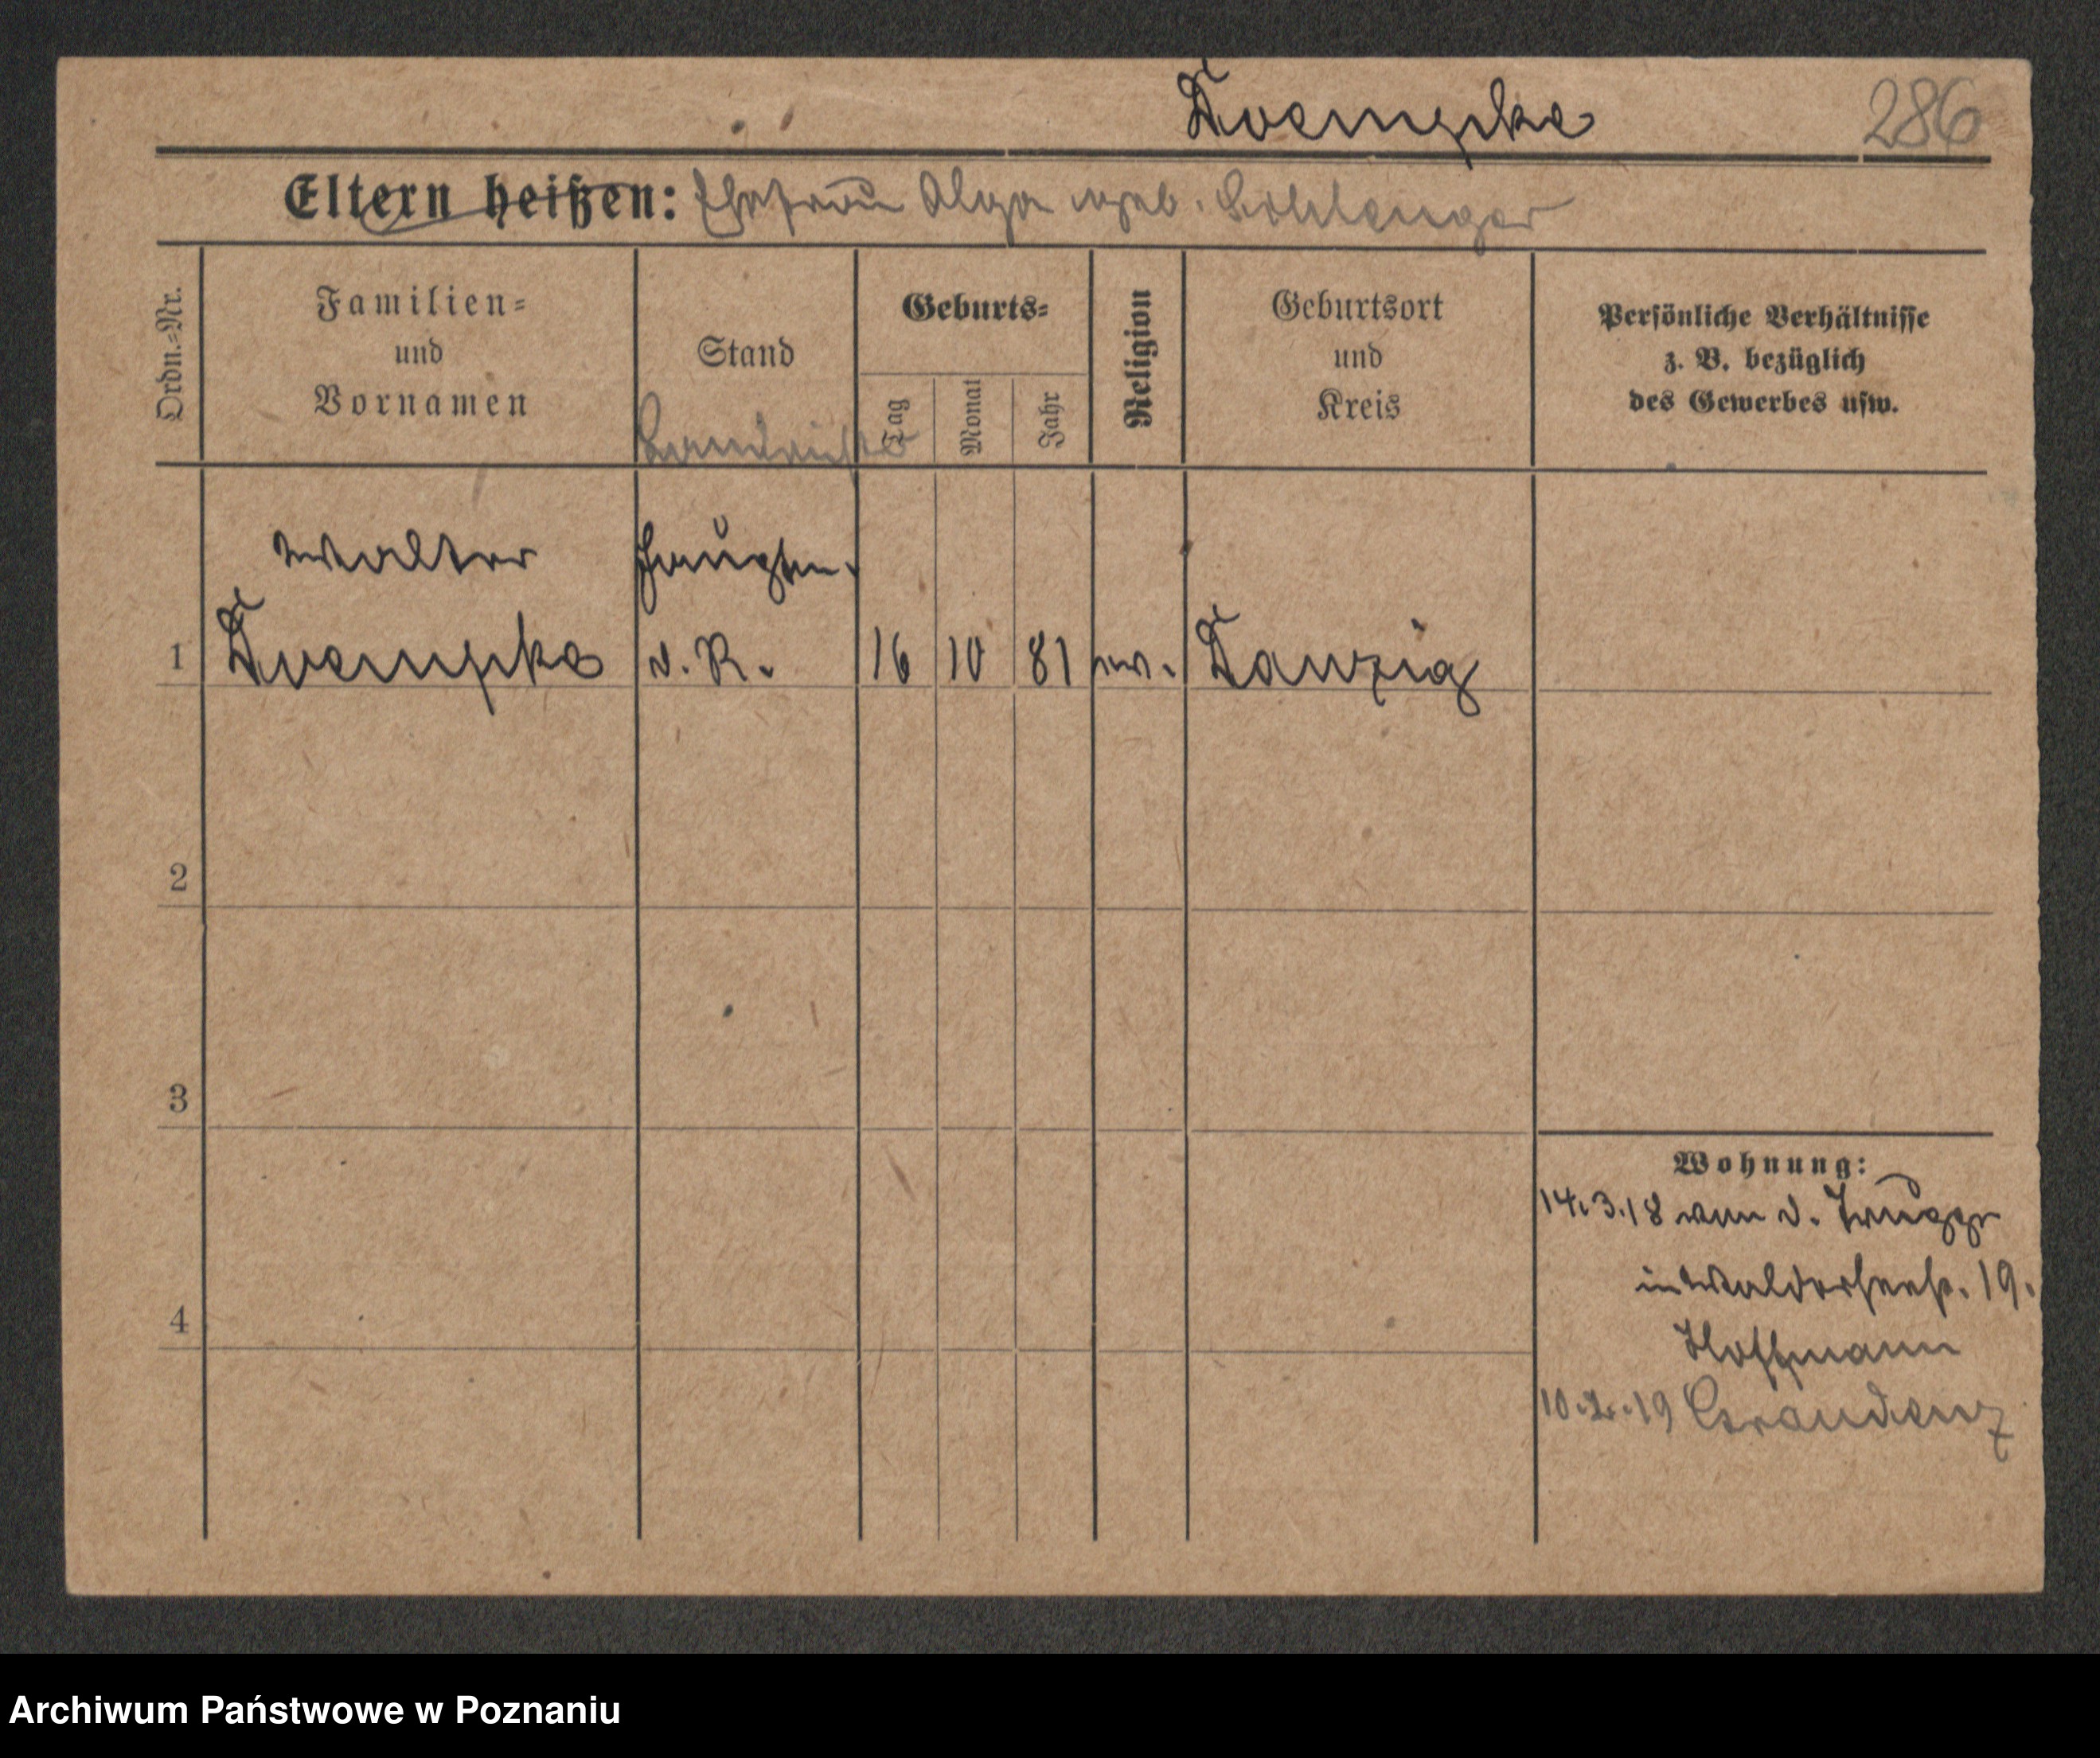 Doempke 286
Eltern heißen: Ehefrau Olga geb. Schlenger
Ordn.-Nr.
Familien-
und
Vornamen
Stand
Geburts-
Tag
Monat
Jahr
Religion
Geburtsort
und
Kreis
Persönliche Verhältnisse
z. B. bezüglich
des Gewerbes usw.
Walter Hauptm.
1 Doempke d. R. 16 10 81 ev. Danzig
2
3
4
Wohnung:
14.3.18 von d. Truppe
in Walderseestr. 19.
Hoffmann
10.2.19 Graudenz
Archiwum Państwowe w Poznaniu